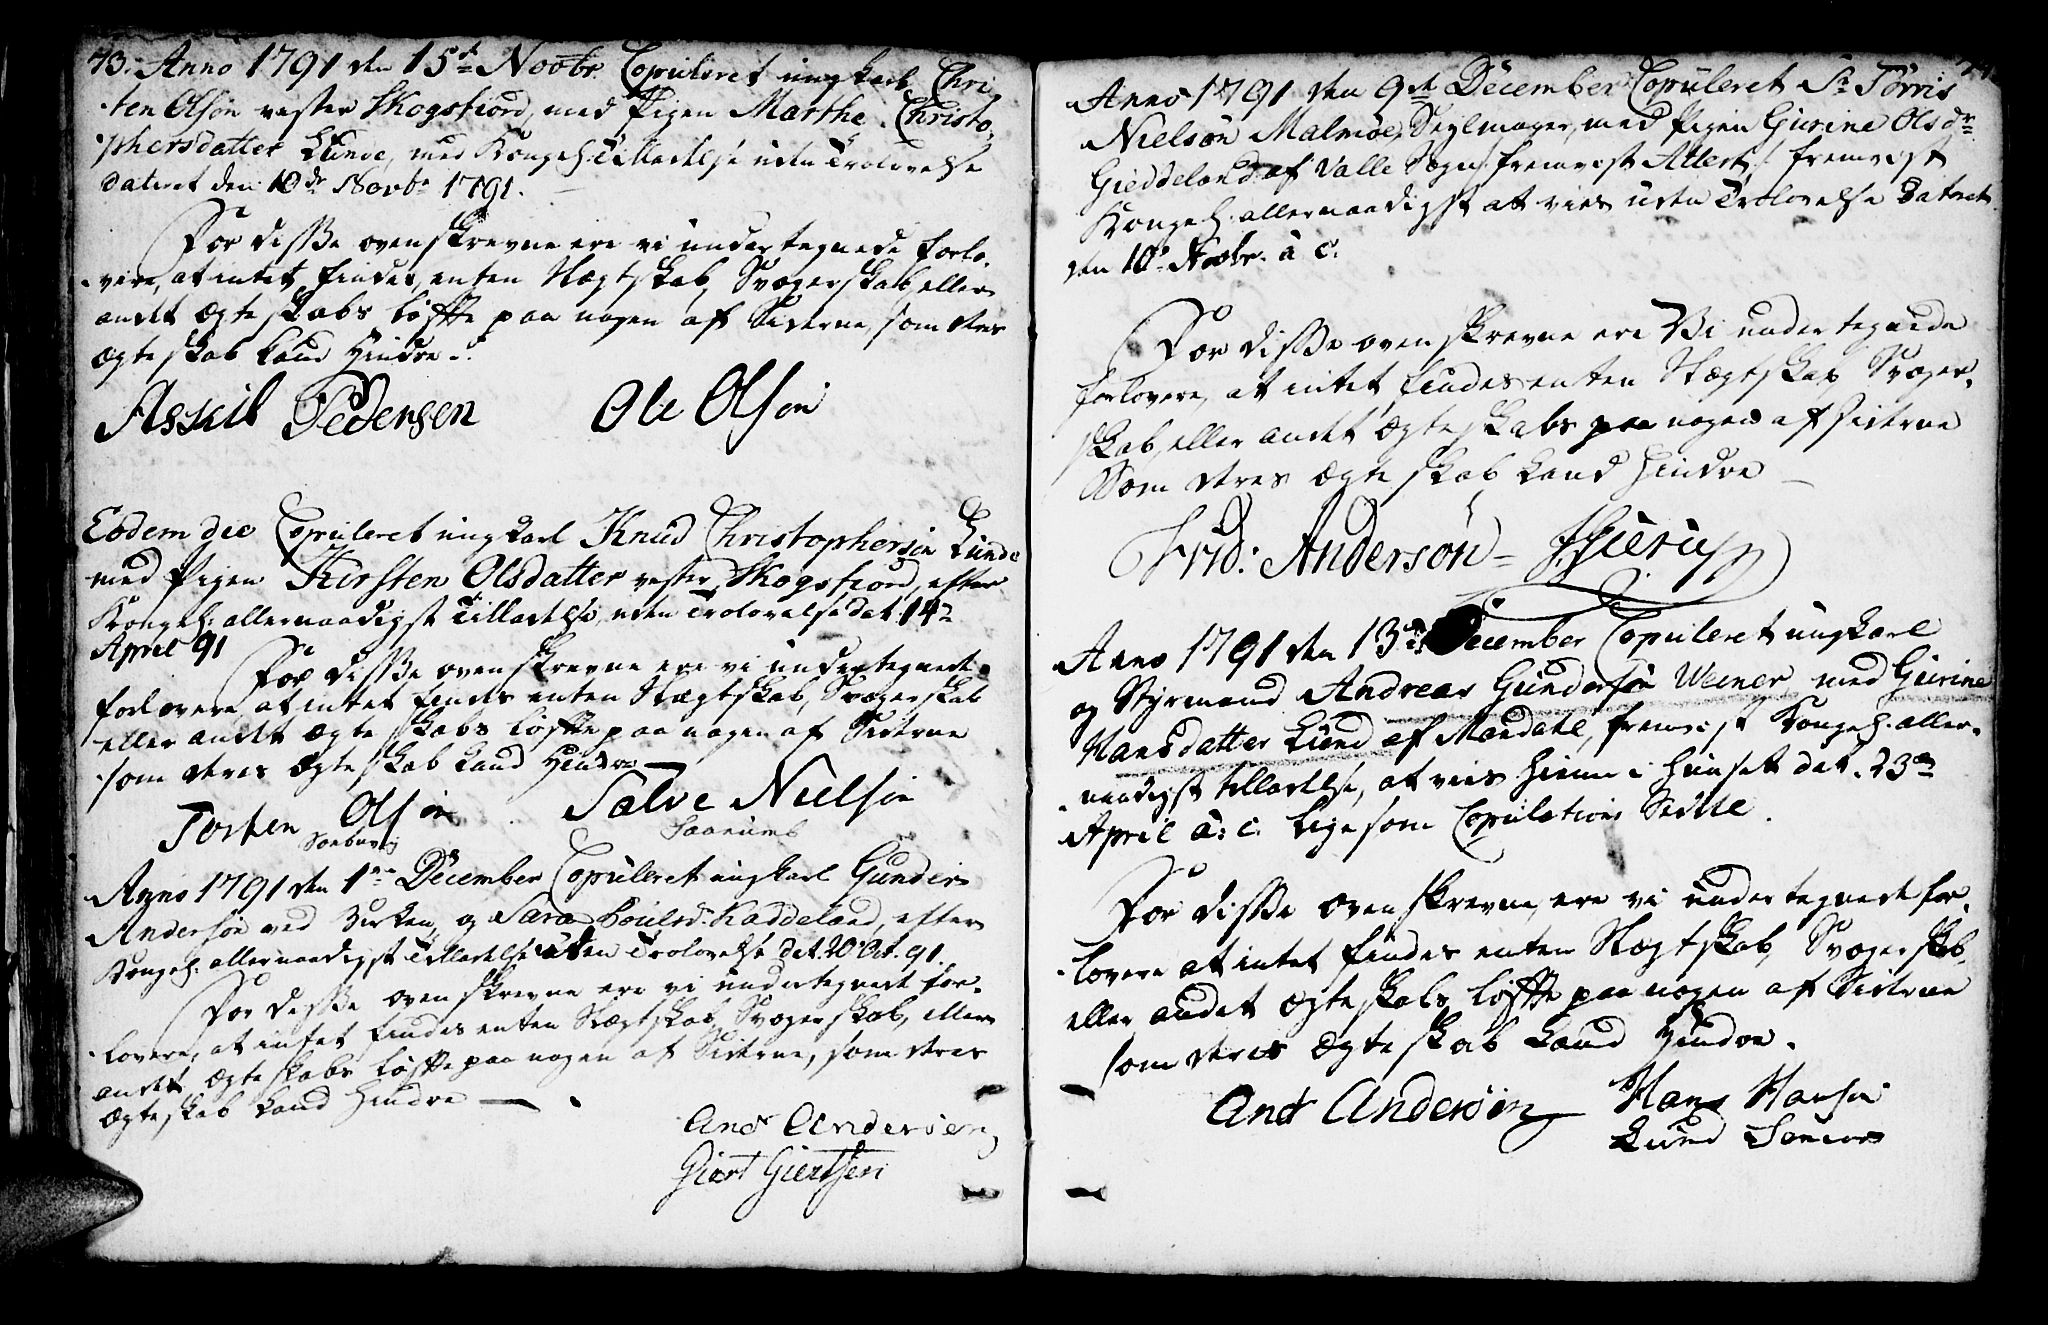 73. Anno 1791 den 15de Novbr. Copuleret ungkarl Chri-
sten Olsøn vester Skogsfiord, med Pigen Marthe Christo-
phersdatter Lunde, med Kongel: Tilladelse uden Trolovelse
dateret den 10de Novbr. 1791.
For disse ovenskrevne ere vi undertegnede forlo-
vere, at intet findes, enten Slægtskab, Svogerskab, eller
andet Ægteskabs løfte paa nogen af Siderne, som deres
Ægteskab kand Hindre.
Asskil Pedersen Ole Olsøn
Eodem die Copuleret ungkarl Knud Christophersøn Lunde
med Pigen Kirsten Olsdatter vester Skogsfiord, efter
Kongel: allernaadigst Tilladelse uden Trolovelse dat. 14de
April 91
For disse ovenskrevne ere vi undertegnede
forlovere at intet findes enten Slægtskab, Svogerskab
eller andet Ægteskabs løfte paa nogen af Siderne
som deres Ægteskab kand Hindre
Torken Olsøn Salve Nielsøn
Anno 1791 den 1te December Copuleret ungkarl Gunder
Andersøn ved Kirken, og Sara Poulsd: Kaddeland, efter
Kongel: allernaadigst Tilladelse uden Trolovelse dat. 20 Oct. 91.
For disse ovenskrevne ere vi undertegnede for-
lovere, at intet findes enten Slægtskab, Svogerskab, eller
andet Ægteskabs løfte paa nogen af Siderne, som deres
Ægteskab kand Hindre
And Andersen
Giert Giertsen
Anno 1791 den 9de December Copuleret Sr. Tørris
Nielsøn Malmøe, Seylmager, med Pigen Gurine Olsdr.
Gieddeland af Valle Sogn fremvist Attest, fremvist
Kongel. allernaadigst at vies uden Trolovelse Dateret
den 10de Novbr. a c.
For disse ovenskrevne ere Vi undertegnede
forlovere, at intet findes enten Slægtskab Svoger-
skab, eller andet Ægteskabs paa nogen af siderne
Som deres Ægteskab kand Hindre
Frid: Andersøn
Anno 1791 den 13de December Copuleret ungkarl
og Styrmand Andreas Gundersøn Weener med Gurine
Hansdatter Lund af Mandahl, fremvist Kongel. aller-
naadigst tilladelse, at vies hiemme i Huuset dat. 23de
April a: c. ligesom Copulations Sedlle.
For disse ovenskrevne, ere vi undertegnede for-
lovere at intet findes enten Slægtskab, Svogerskab,
eller andet Ægteskabs løfte paa nogen af Siderne
som deres Ægteskab kand Hindre.
And Andersøn Hans Hansen
Lund